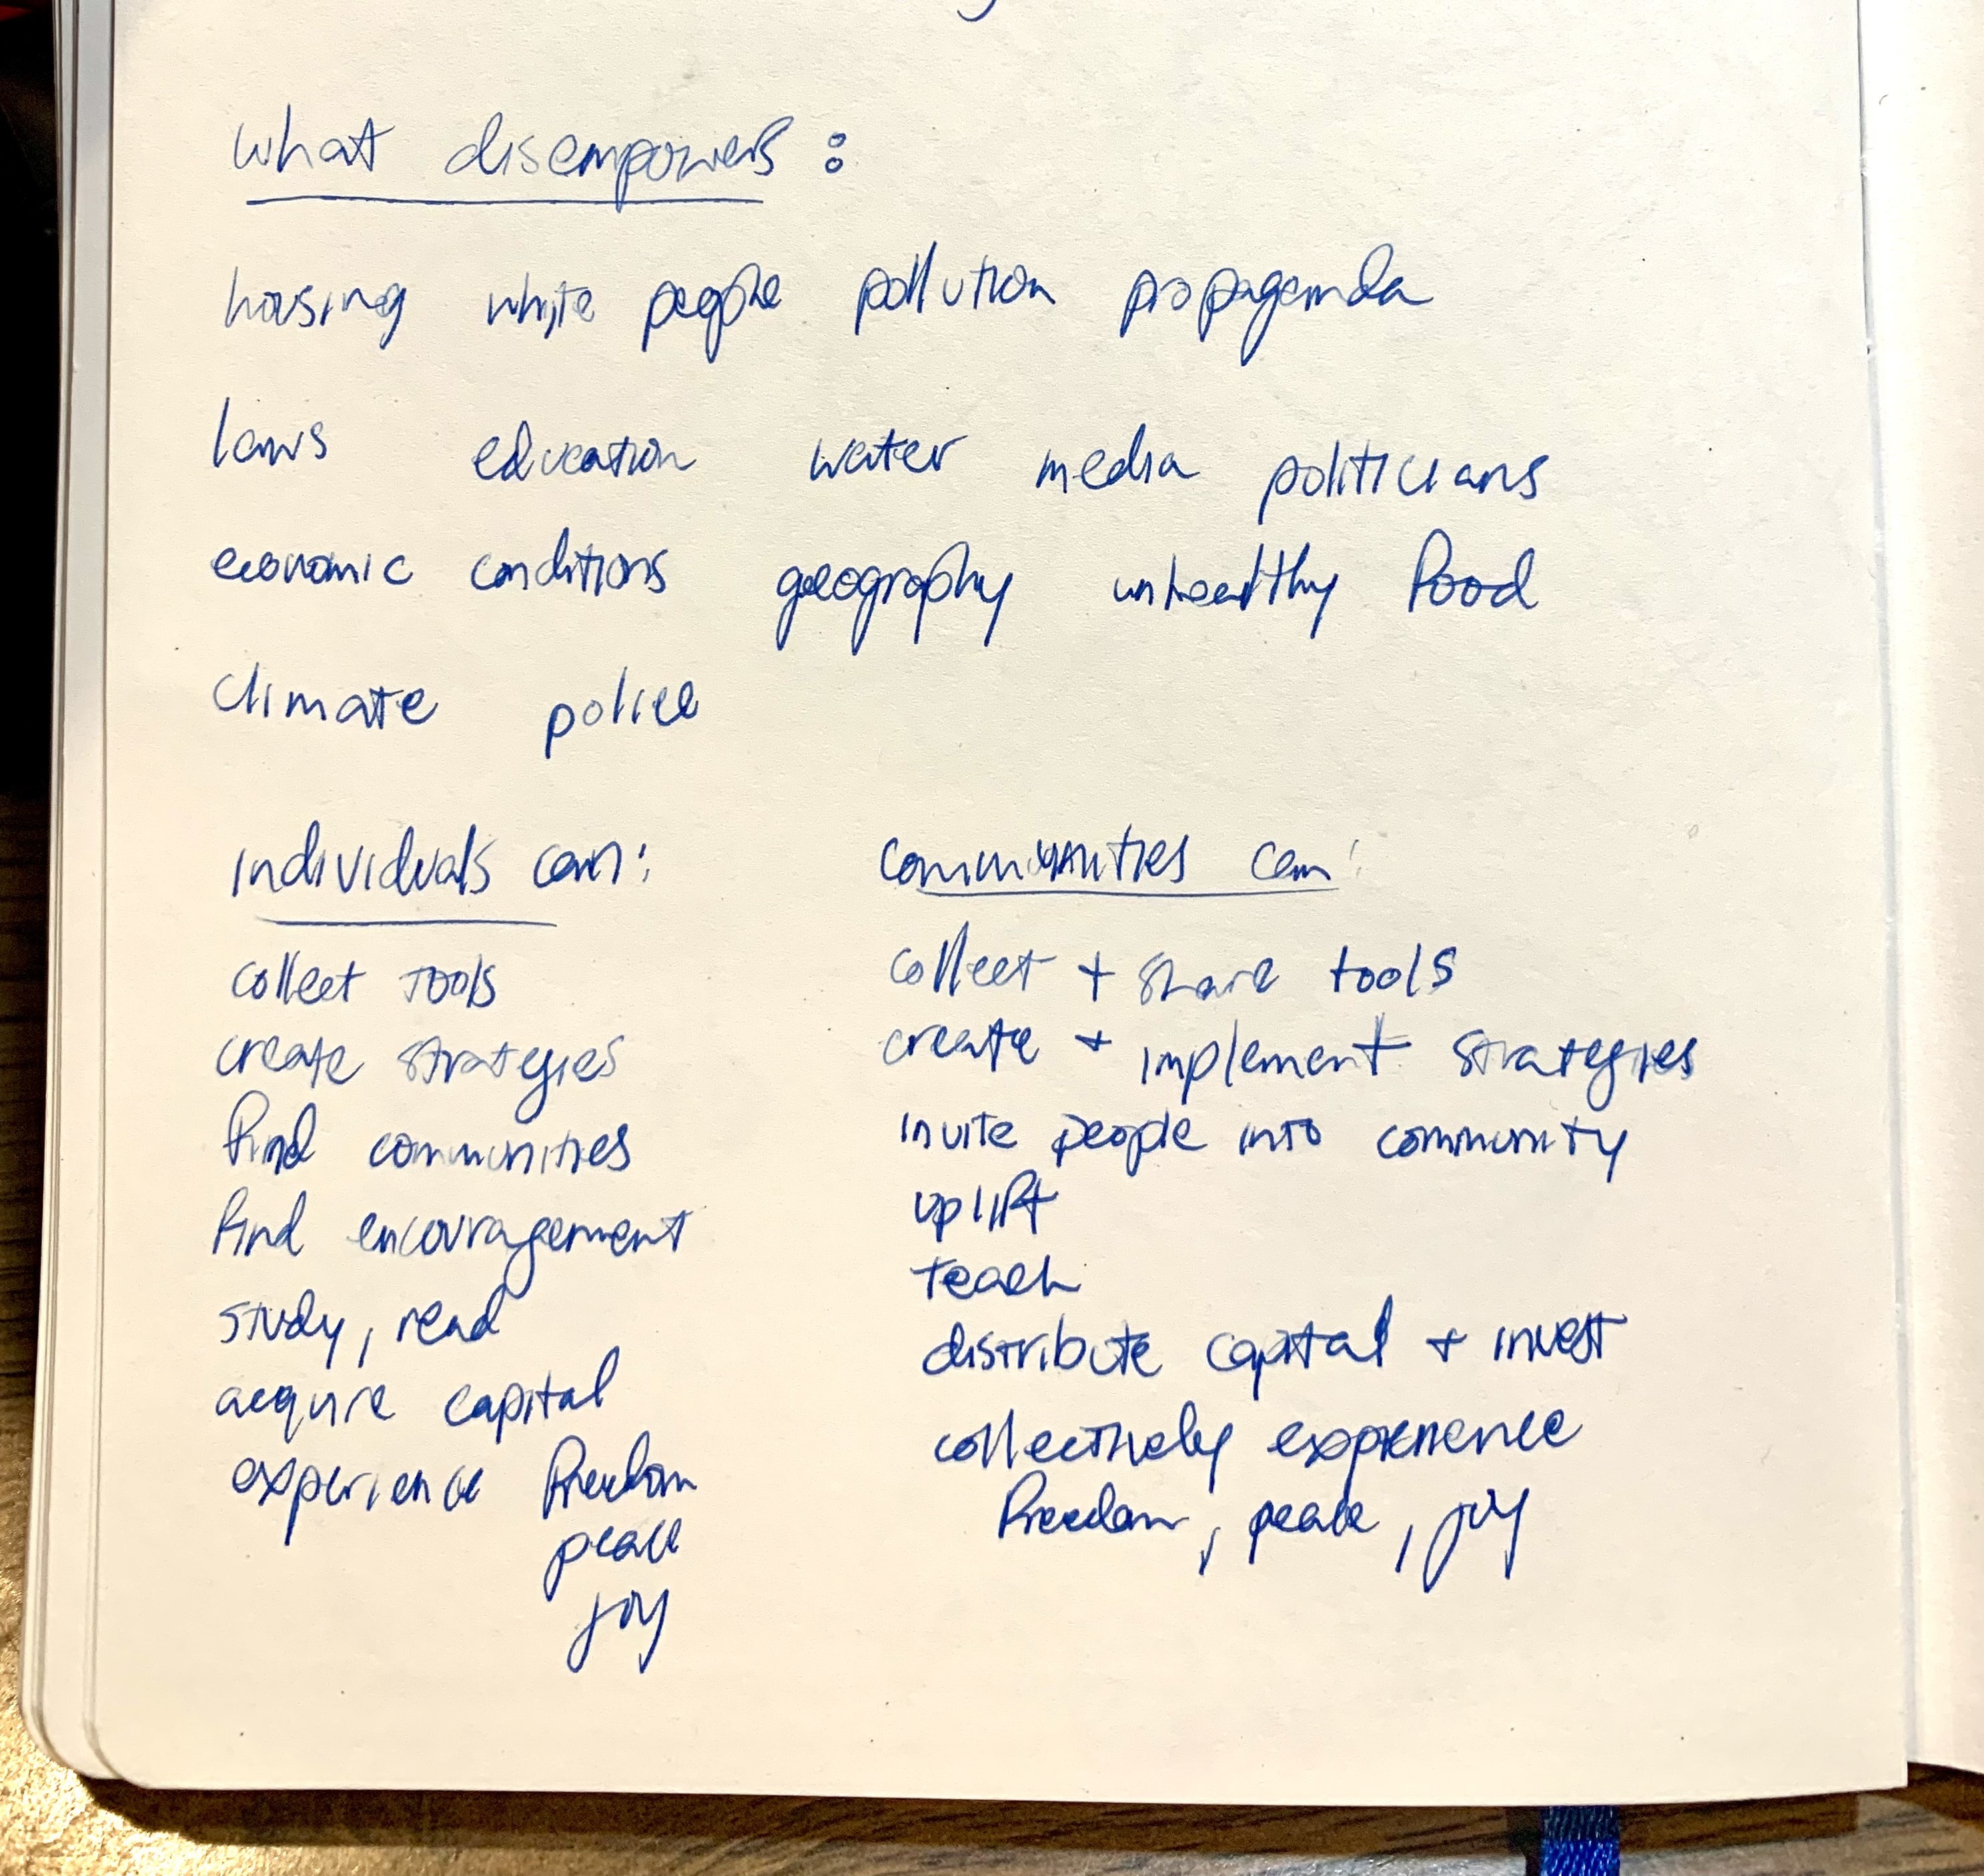 what disempowers:
housing white people pollution propaganda
laws education water media politicians
economic conditions geography unhealthy food
climate police
individuals can:
collect tools
create strategies
find communities
find encouragement
study, read
acquire capital
experience freedom
peace
joy
communities can:
collect + share tools
create + implement strategies
invite people into community
uplift
teach
distribute capital + invest
collectively experience
freedom, peace, joy